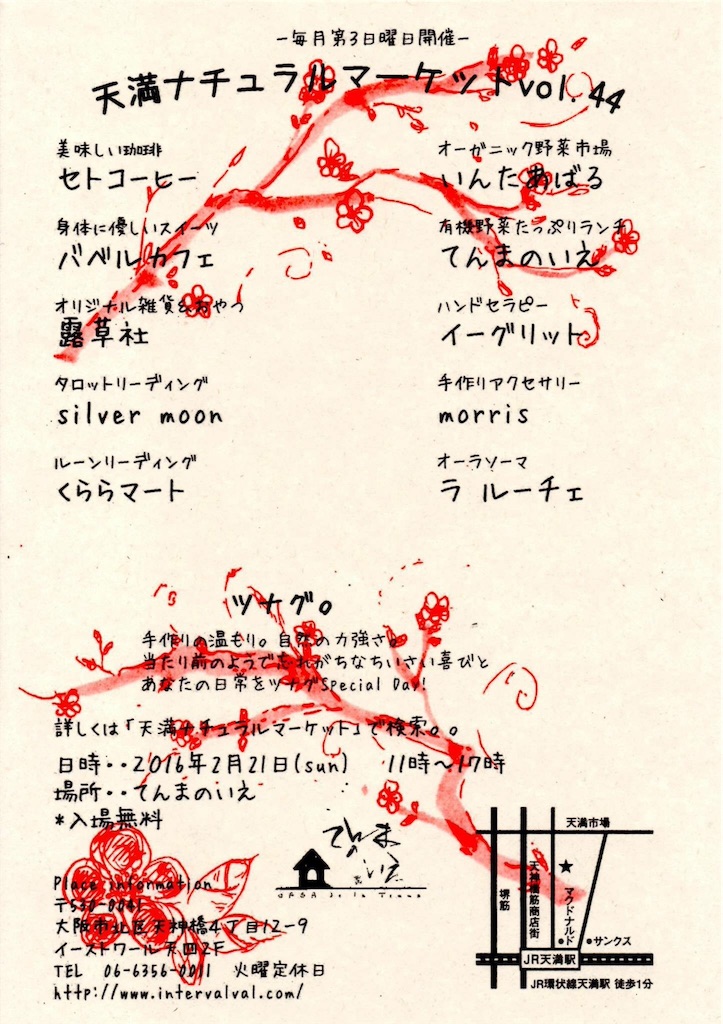 －毎月第3日曜日開催－
天満ナチュラルマーケットvol.44
美味しい珈琲
セトコーヒー
身体に優しいスイーツ
バベルカフェ
オリジナル雑貨&おやつ
露草社
タロットリーディング
silver moon
ルーンリーディング
くららマート
オーガニック野菜市場
いんたあばる
有機野菜たっぷりランチ
てんまのいえ
ハンドセラピー
イーグリット
手作りアクセサリー
morris
オーラソーマ
ラ ルーチェ
ツナグ。
手作りの温もり。自然の力強さ。
当たり前のようで忘れがちなちいさい喜びと
あなたの日常をツナグSpecial Day!
詳しくは「天満ナチュラルマーケット」で検索。。
日時・・2016年2月21日(sun) 11時～17時
場所・・てんまのいえ
*入場無料
てんまのいえ
CASA de la Tenma
Place information
〒530-0041
大阪市北区天神橋4丁目12-9
イーストワール天四2F
TEL 06-6356-0011 火曜定休日
http://www.intervalval.com/
天満市場
堺筋
天神橋筋商店街
★
マクドナルド
サンクス
JR天満駅
JR環状線天満駅 徒歩1分